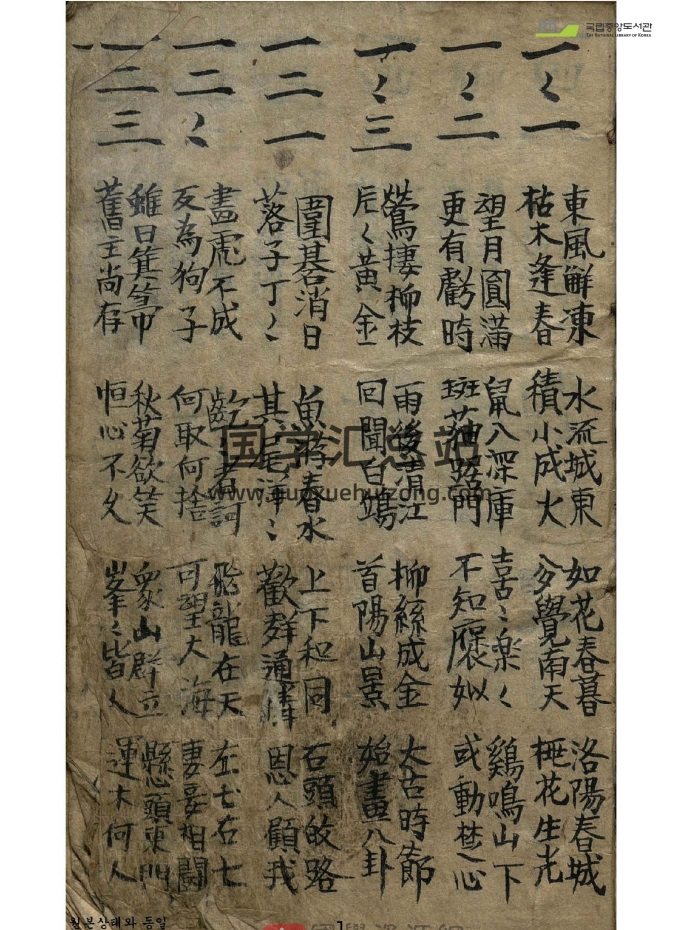 국립중앙도서관
THE NATIONAL LIBRARY OF KOREA
一〻一
東風解凍 水流城東 如花春暮 洛陽春城
枯木逢春 積小成大 覺南天 花生光
一〻二
望月圓滿 鼠入深庫 喜〻樂〻 鷄鳴山下
更有虧時 斑猫臨門 不知褒姒 或動楚心
一〻三
鶯捿柳枝 雨後清江 柳絲成金 太古時節
片〻黃金 回聞白鷗 首陽山景 始畫八卦
一二一
圍碁消日 魚游春水 上下和同 石頭路
落子丁〻 其尾洋〻 歡群通 恩人顧我
一二〻
畫虎不成 飛龍在天 左七右七
反為狗子 何取何捨 可望大海 妻妾相鬪
一二三
雖曰箕箒 秋菊欲笑 衆山群立 懸頭東門
舊主尚存 恒心不久 峯〻皆人 運木何人
国学汇总站
www.guoxuehuizong.com
원본상태와 동일
1